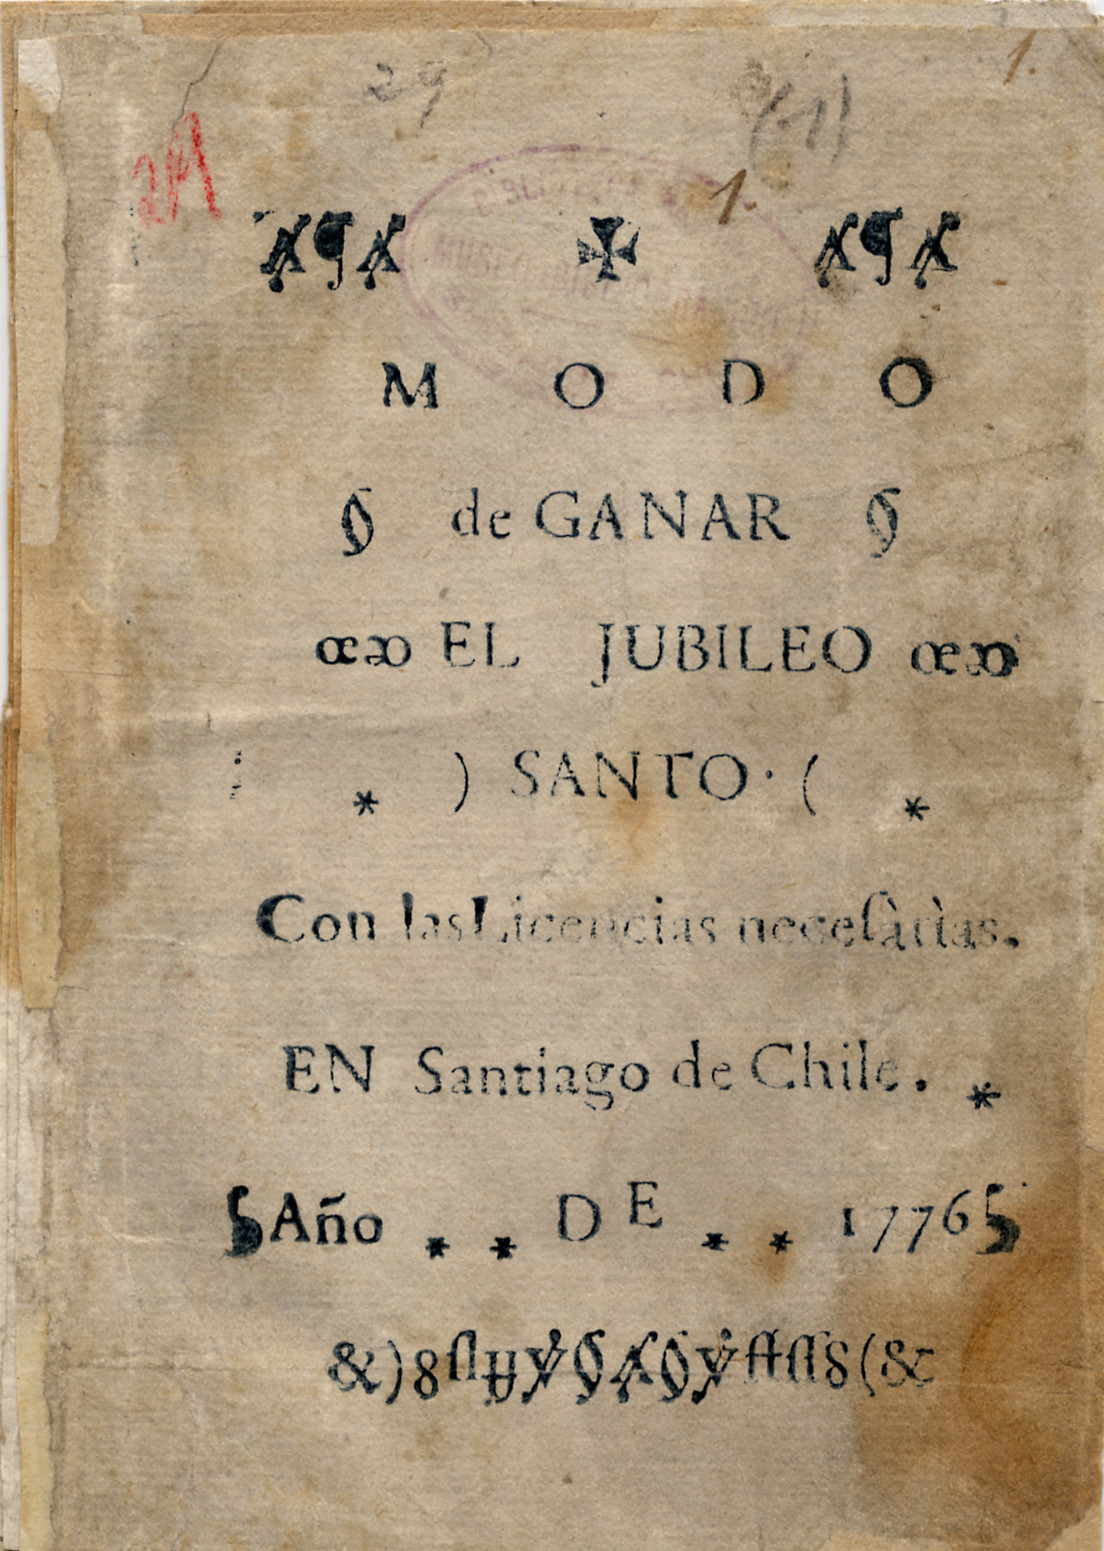 1.
29
29
1.
✠
M O D O
de GANAR
EL JUBILEO
* ) SANTO · ( *
Con las Licencias neceſàrìas.
EN Santiago de Chile. *
Año * * DE * * 1776